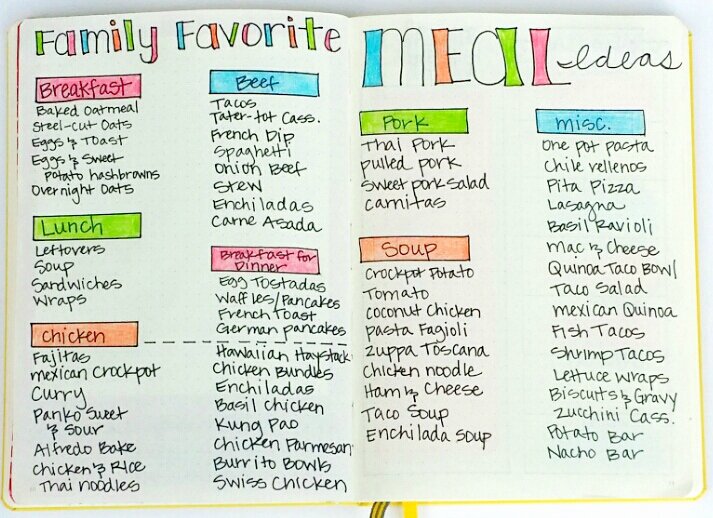 Family Favorite
Breakfast
Baked Oatmeal
Steel-cut Oats
Eggs & Toast
Eggs & Sweet
Potato hashbrowns
Overnight Oats
Lunch
Leftovers
Soup
Sandwiches
Wraps
Chicken
Fajitas
mexican crockpot
Curry
Panko Sweet
& Sour
Alfredo Bake
Chicken & Rice
Thai noodles
Beef
Tacos
Tater-tot Cass.
French Dip
Spaghetti
Onion Beef
Stew
Enchiladas
Carne Asada
Breakfast for
Dinner
Egg Tostadas
Waffles/Pancakes
French Toast
German pancakes
Hawaiian Haystack
Chicken Bundles
Enchiladas
Basil Chicken
Kung Pao
Chicken Parmesan
Burrito Bowls
Swiss Chicken
MEAL Ideas
Pork
Thai Pork
pulled pork
sweet pork salad
carnitas
Soup
Crockpot Potato
Tomato
coconut chicken
pasta Fagioli
zuppa Toscana
Chicken noodle
Ham & Cheese
Taco Soup
Enchilada Soup
misc.
One pot pasta
Chile rellenos
Pita Pizza
Lasagna
Basil Ravioli
Mac & Cheese
Quinoa Taco Bowl
Taco Salad
mexican Quinoa
Fish Tacos
Shrimp Tacos
Lettuce wraps
Biscuits & Gravy
Zucchini Cass.
Potato Bar
Nacho Bar